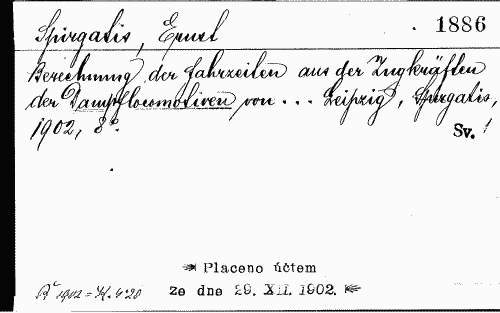 Spirgatis, Ernst 1886
Berechnung der Fahrzeiten aus der Zugkräften
der Dampflocomotiven von ... Leipzig, Spirgatis,
1902, 8°. Sv. 1
Placeno účtem
ze dne 29. XII. 1902.
1902 =